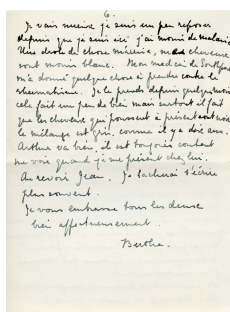 6.
Je vais mieux je suis un peu reposée
depuis que je suis ici j'ai moins de malaise
Une drole de chose m'arrive, mes cheveux
sont moins blanc. Mon medecin de
m'a donné quelque chose à prendre contre le
rheumatisme. Je le prends depuis quelque mois
cela fait un peu de bien mais surtout il fait
que les cheveux qui poussent à présent sont noir
le mélange est gris, comme il y a dix ans.
Arthur va bien, il est toujours content
me voir quand je me présent chez lui.
Au revoir Jean. Je tacherai t'écrire
plus souvent.
Je vous embrasse tous les deux
bien affectueusement.
Berthe.